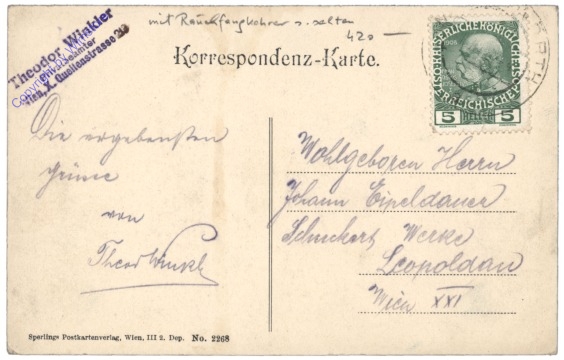 mit Rauchfangkehrer s. selten
420 —
Theodor Winkler
Privatbeamter
Wien, X. Quellenstrasse
Korrespondenz-Karte.
KAISERLICHE KÖNIGLICHE
ÖSTERREICHISCHE
1908
5 HELLER 5
Die ergebensten
Grüsse
von
Theod Winkl
Wohlgeboren Herrn
Johann Eipeldauer
Schuckert Werke
Leopoldau
Wien XXI
Sperlings Postkartenverlag, Wien, III 2. Dep. No. 2268